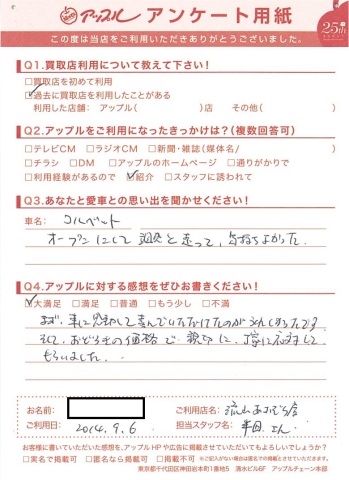 アップル アンケート用紙
25th
この度は当店をご利用いただきありがとうございました。
Q1.買取店利用について教えて下さい!
□買取店を初めて利用
☑過去に買取店を利用したことがある
利用した店舗: アップル( )店 その他( )
Q2.アップルをご利用になったきっかけは?(複数回答可)
□テレビCM □ラジオCM □新聞・雑誌(媒体名/ )
□チラシ □DM □アップルのホームページ □通りがかりで
□利用経験があるので ☑紹介 □スタッフに誘われて
Q3.あなたと愛車との思い出を聞かせください!
車名: コルベット
オープンにして 走って、気持ちよかった。
Q4.アップルに対する感想をぜひお書きください!
☑大満足 □満足 □普通 □もう少し □不満
まず、車に 喜んでいただけたのが うれしかったです
そして、おどろきの価格で 親切に、丁寧に対応して
もらいました。
お名前: ご利用店名: 流山おおぞら店
ご利用日: 2014.9.6 担当スタッフ名: さん
お客様に書いていただいた感想を、アップルHPや広告に掲載させていただいてもよろしいでしょうか?
□実名で掲載可 □匿名なら掲載可 □掲載不可 ※ご記入がない場合は匿名での掲載とさせていただきます。
東京都千代田区神田岩本町1番地5 清水ビル6F アップルチェーン本部